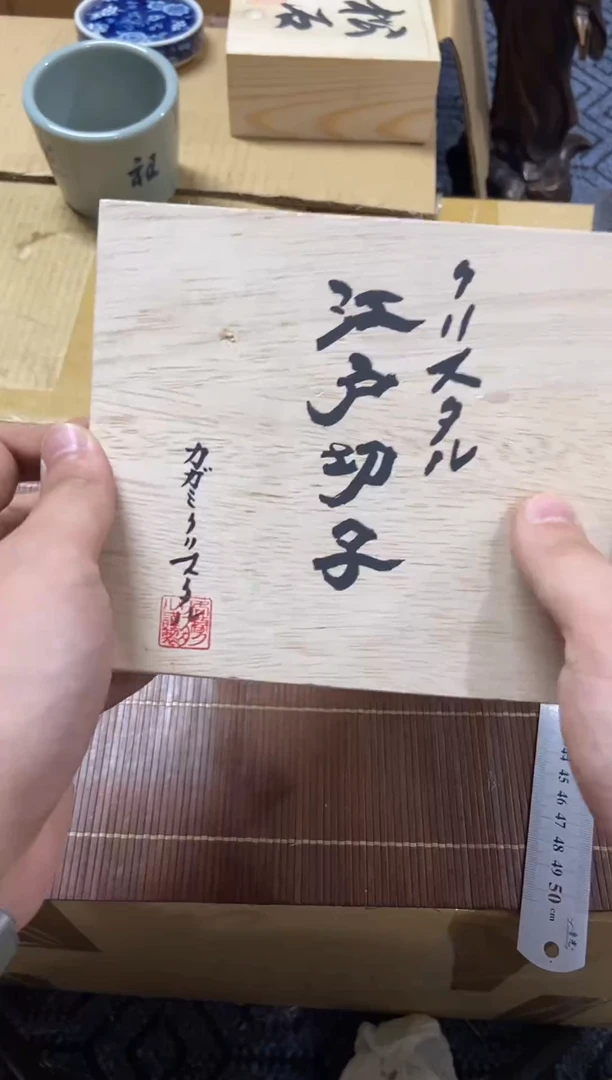 クリスタル
江戸切子
カガミクリスタル
祖
44 45 46 47 48 49 50 cm